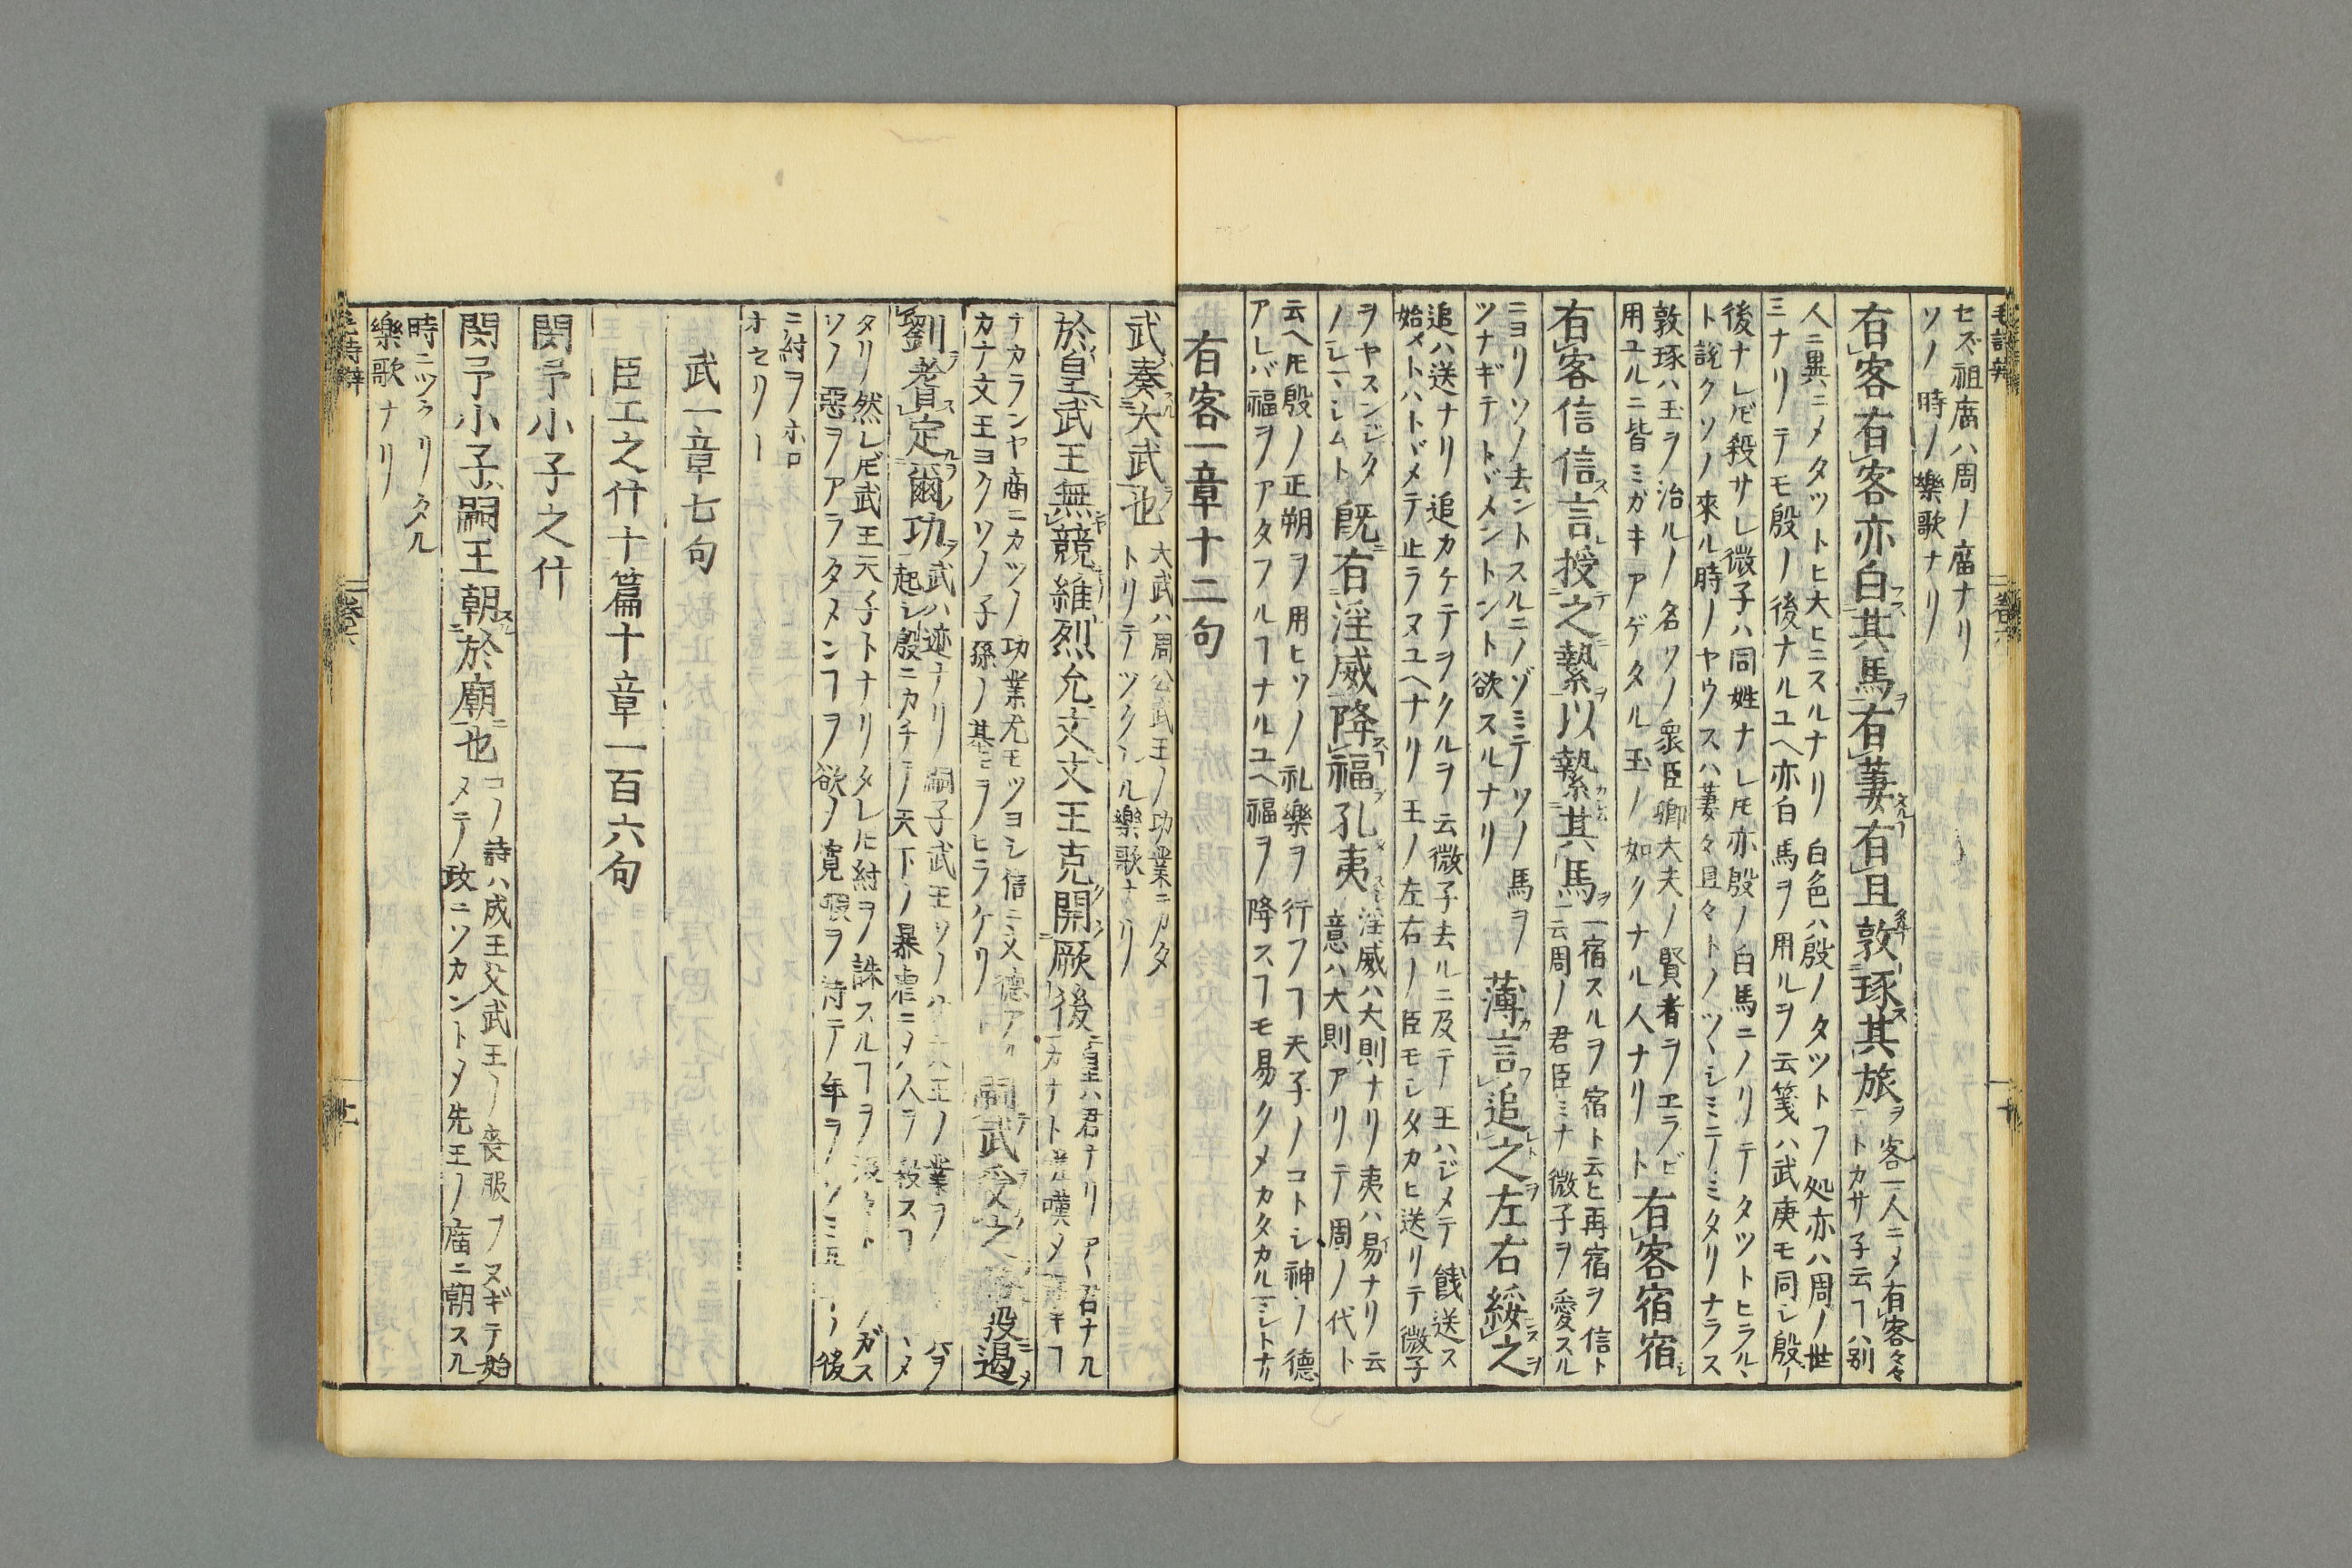 セズ祖庿ハ周ノ庿ナリ
ソノ時ノ樂歌ナリ
有客有客亦白其馬有萋有且敦琢其旅
客一人ニ〆有客々々
トカサ子云フハ别
人ニ異ニ〆タツトヒ大ヒニスルナリ白色ハ殷ノタツトフ処亦ハ周ノ世
ミナリリテモ殷ノ後ナルユヘ亦白馬ヲ用ルヲ云箋ハ武庚モ同シ殷ノ
後ナレ𪜈殺サレ微子ハ同姓ナレ𪜈亦殷ノ白馬ニノリテタツトヒラル丶
ト說クソノ來ル時ノヤウスハ萋々且々トノツ丶シミニノミタリナラス
敦琢ハ玉ヲ治ルノ名ソノ衆臣卿大夫ノ賢者ヲエラビ
用ユルニ皆ミガキアゲタル玉ノ如クナル人ナリト
有客宿宿
有客信信言授之縶以縶其馬
一宿スルヲ宿ト云ヒ再宿ヲ信ト
云周ノ君臣ミナ微子ヲ愛スル
ニヨリソノ去ントスルニノゾミテソノ馬ヲ
ツナギテトヾメントント欲スルナリ
薄言追之左右綏之
追ハ送ナリ追カケテヲクルヲ云微子去ルニ及テ王ハジメテ餞送ス
始メトハトヾメテ止ラヌユヘナリ王ノ左右ノ臣モシタカヒ送リテ微子
ヲヤスンジタ
ノシマシムト
旣有淫威降福孔夷
淫威ハ大則ナリ夷ハ易ナリ云
意ハ大則アリテ周ノ代ト
云ヘ𪜈殷ノ正朔ヲ用ヒソノ礼樂ヲ行フヿ天子ノコトシ神ノ德
アレバ福ヲアタフルヿナルユヘ福ヲ降スヿモ易ク〆カタカルマシトナリ
有客一章十二句
武奏大武也
大武ハ周公武王ノ功業ニカタ
トリテツクレル樂歌ナリ
於皇武王無競維烈允文文王克開厥後
皇ハ君ナリアヽ君ナル
カナト嘆〆ツヨキヿ
ナカランヤ商ニカツノ功業尤モツヨシ信ニ文德アル
カナ文王ヨクソノ子孫ノ基ヲヒラケリ
嗣武受之勝殷遏
劉耆定爾功
武ハ迹ナリ嗣子武王ソノ王ノ業ヲ
起シ殷ニカチテ天下ノ暴虐ニ〆人ヲ殺スヿ
タリ然レ𪜈武王天子トナリタレ𪜈紂ヲ誅スルヿヲ
ソノ惡ヲアラタメンヿヲ欲ノ寬暇ヲ待テ年ヲ
ニ紂ヲホロ
オセリト
武一章七句
臣工之什十篇十章一百六句
閔予小子之什
閔予小子嗣王朝於廟也
コノ詩ハ成王父武王ノ喪服ヲヌギテ始
メテ政ニソカントメ先王ノ庿ニ朝スル
時ニツクリタル
樂歌ナリ